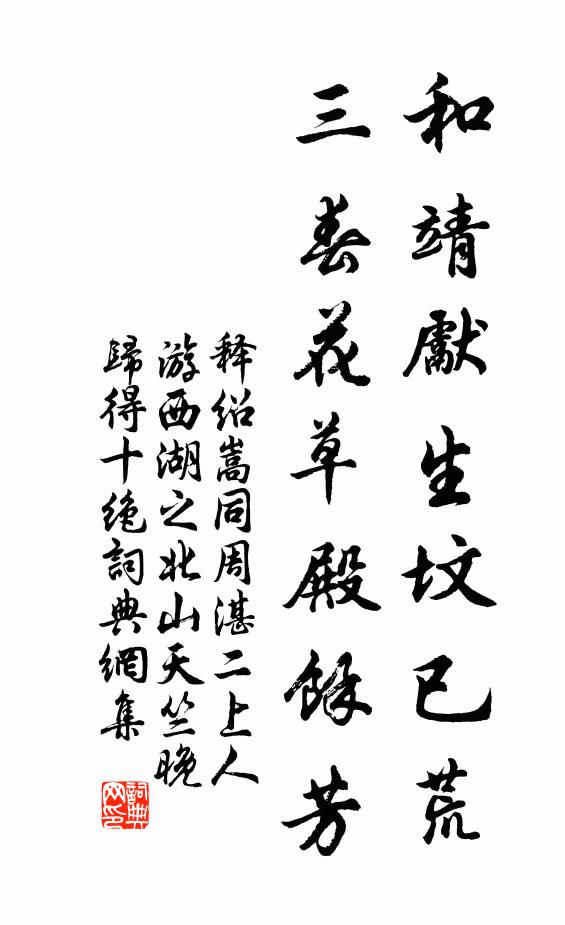 和靖獻生坟已荒
三春花草殿餘芳
释绍嵩同周湛二上人
游西湖之北山天竺晚
歸得十绝詞典網集
詞典
网印